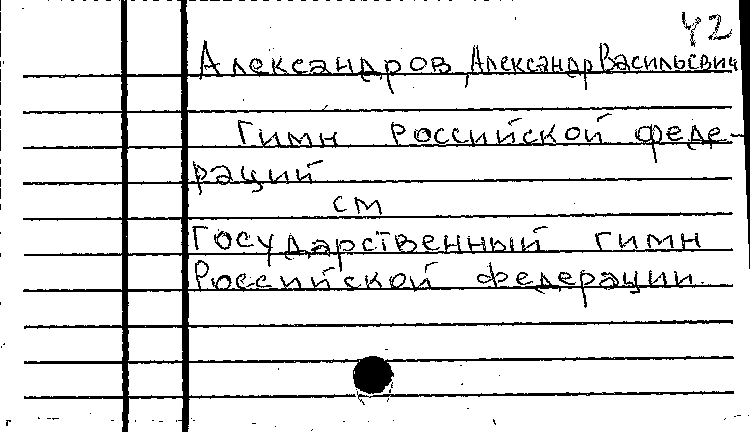 42
Александров, Александр Васильевич
Гимн Российской феде-
раций
см
Государственный гимн
Российской федерации.